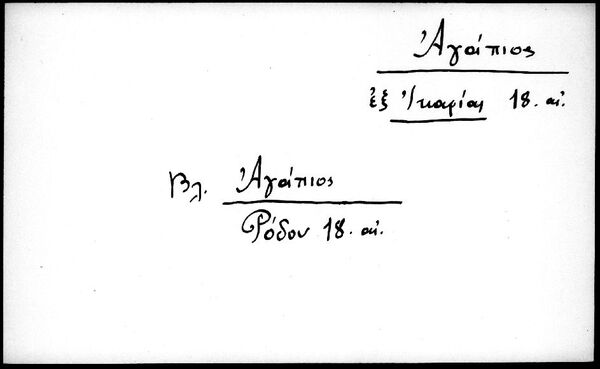 Ἀγάπιος
ἐξ Ἰκαρίας 18. αἰ.
Βλ. Ἀγάπιος
Ρόδου 18. αἰ.